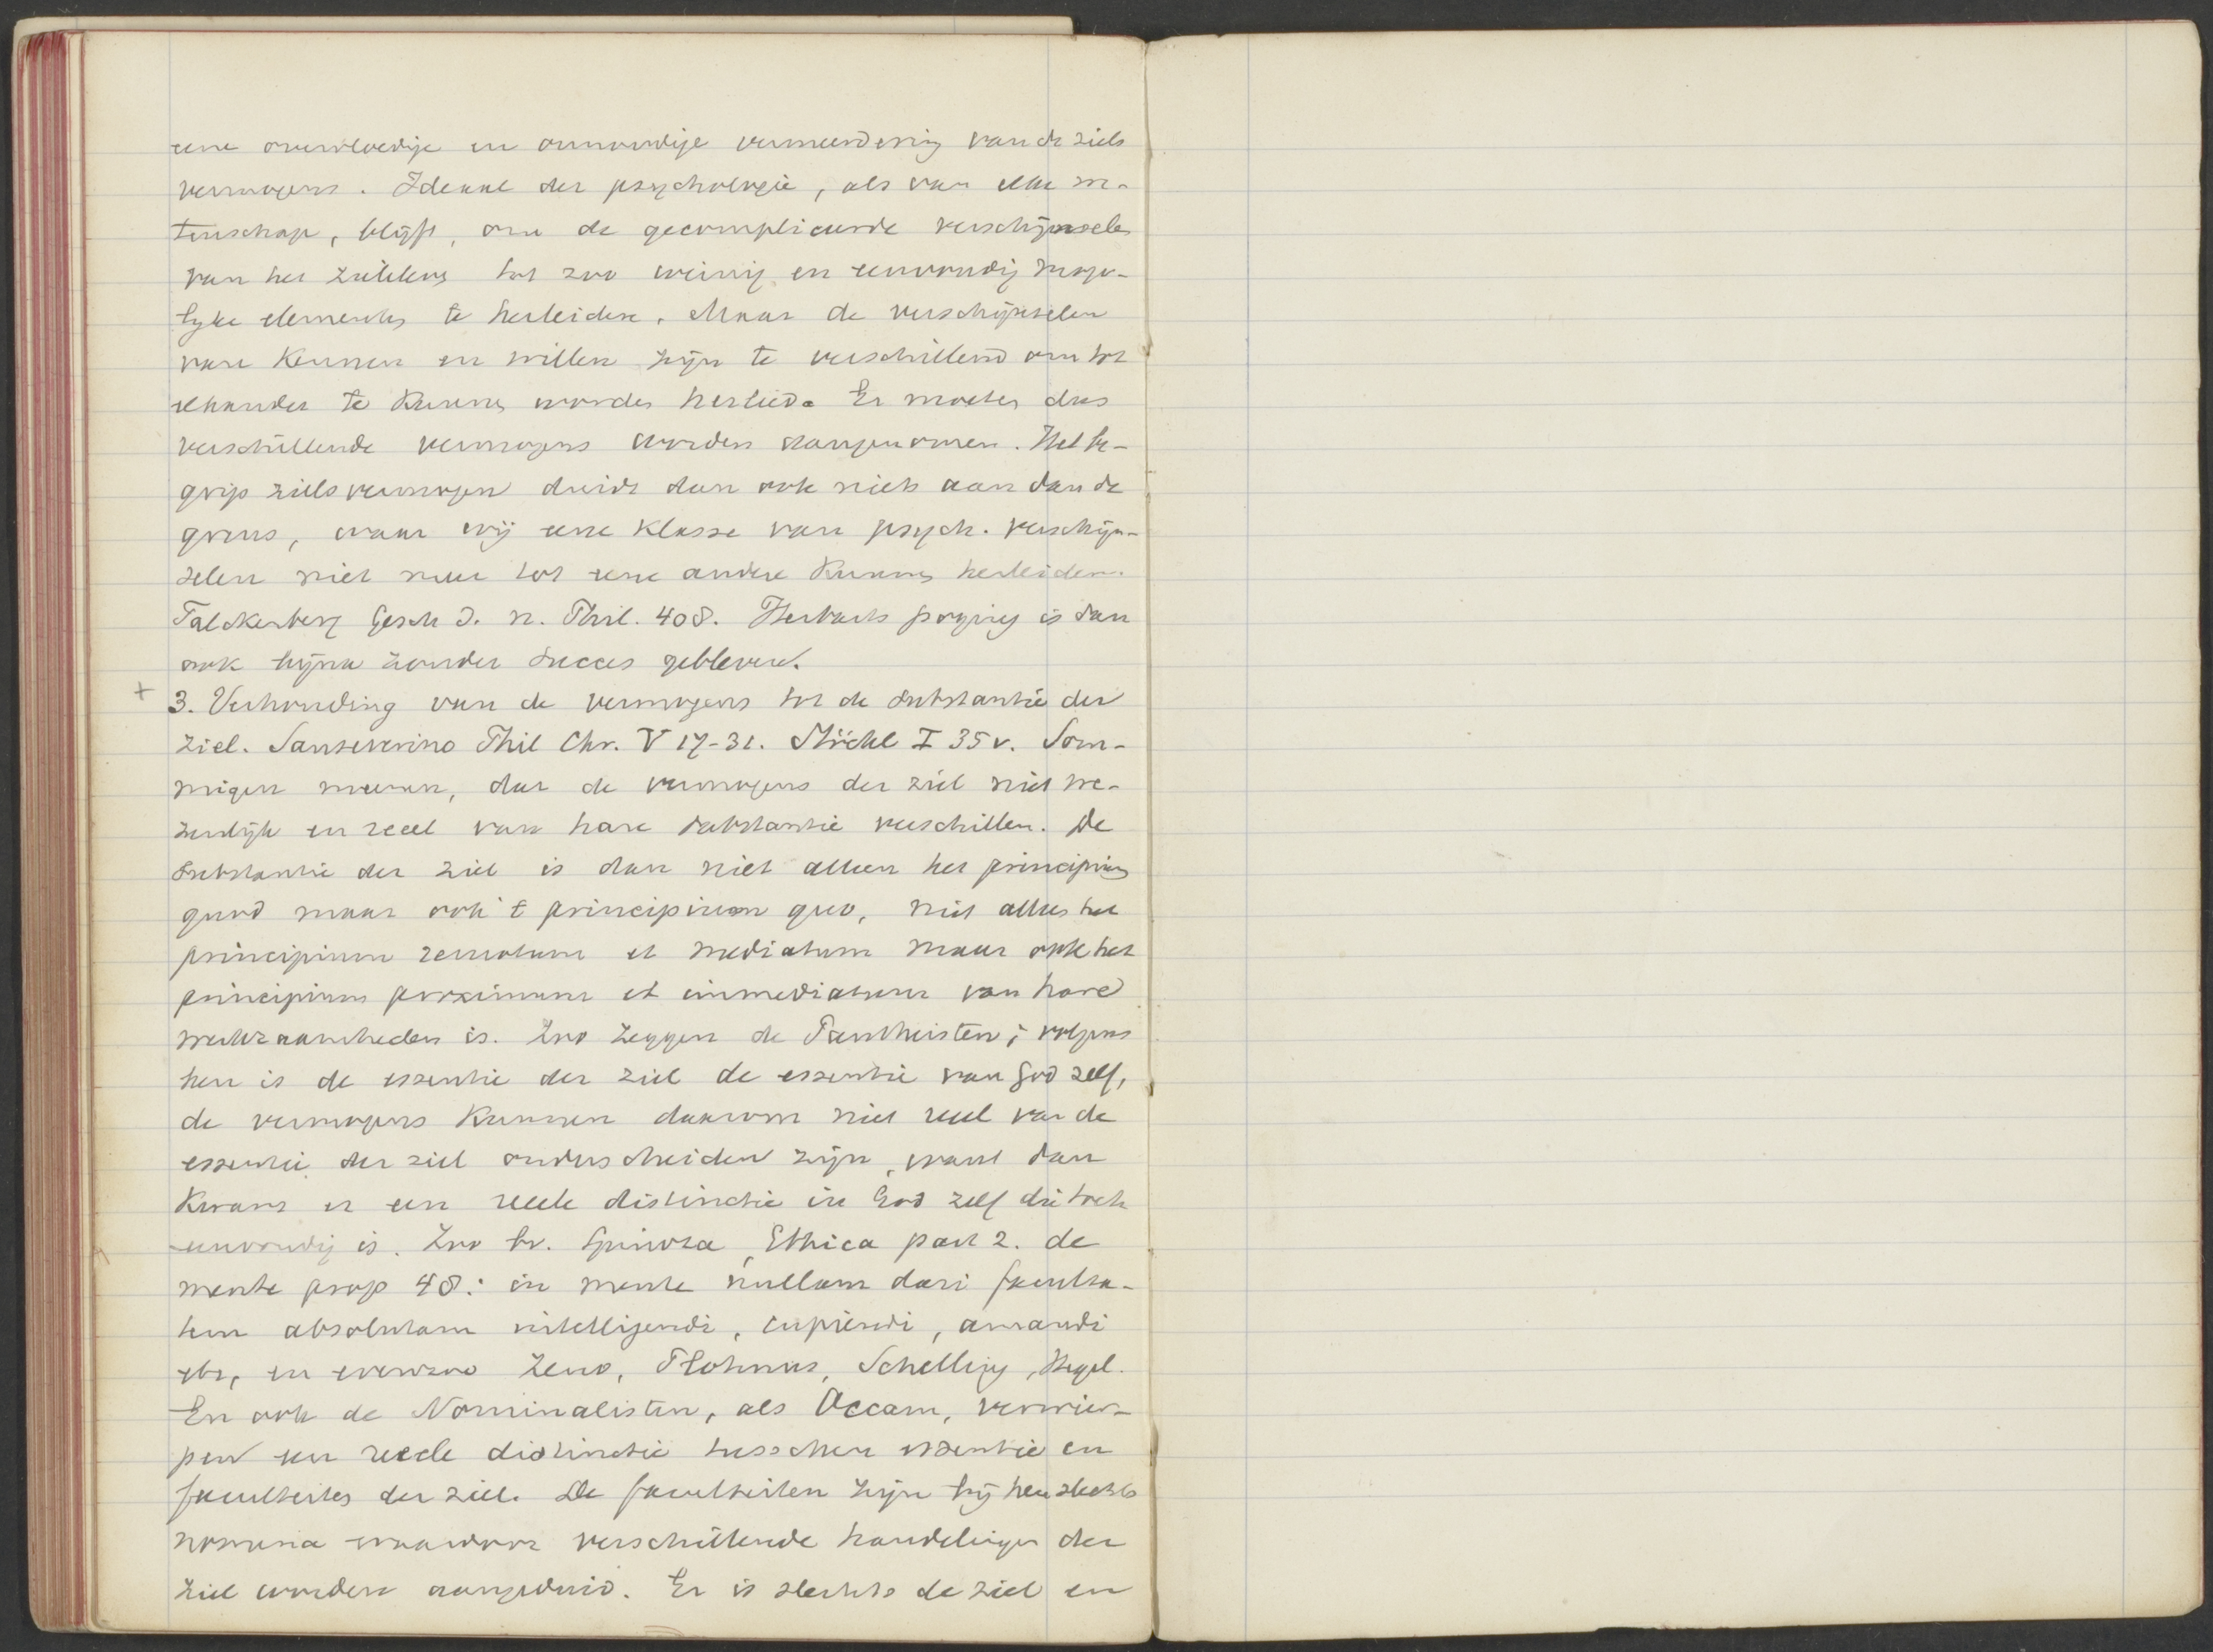 eene overvloedige en onnoodige vermeerdering van de ziels
vermogens. Ideaal der psychologie, als van elke we-
tenschap, blijft, om de gecompliceerde verschijnselen
van het zieleleven tot zoo weinig en eenvoudig moge-
lyke elementen te herleiden. Maar de verschijnselen
van kennen en willen zijn te verschillend om tot
elkander te kunnen worden herleid. Er moeten dus
verschillende vermogens worden aangenomen. Het be-
grip zielsvermogen duidt dan ook niets aan dan de
grens, waar wij eene klasse van psych. verschijn-
selen niet meer tot eene andere kunnen herleiden.
Falckenberg Gesch d. n. Phil. 408. Herbarts poging is dan
ook bijna zonder succes gebleven.
+ 3. Verhouding van de vermogens tot de substantie der
ziel. Sanseverino Phil Chr. V 17-31. Stöckl I 35 v. Som-
migen meenen, dat de vermogens der ziel niet we-
zenlijk en reeel van hare substantie verschillen. De
substantie der ziel is dan niet alleen het principium
quod maar ook 't principium quo, niet alleen het
principium remotum et mediatum maar ook het
principium proximum et immediatum van hare
werkzaamheden is. Zoo zeggen de Pantheisten; volgens
hen is de essentie der ziel de essentie van God zelf,
de vermogens kunnen daarom niet reeel van de
essentie der ziel onderscheiden zijn, want dan
kwam er een reeele distinctie in God zelf die toch
eenvoudig is. Zoo bv. Spinoza, Ethica part 2. de
mente prop 48: in mente nullam dari faculta-
tem absolutam intelligendi, cupiendi, amandi
etc, en evenzoo Zeno, Plotinus, Schelling, Hegel.
En ook de Nominalisten, als Occam, verwier-
pen een reeele distinctie tusschen essentie en
faculteiten der ziel. De faculteiten zijn bij hen slechts
nomina waardoor verschillende handelingen der
ziel worden aangeduid. Er is slechts de ziel en